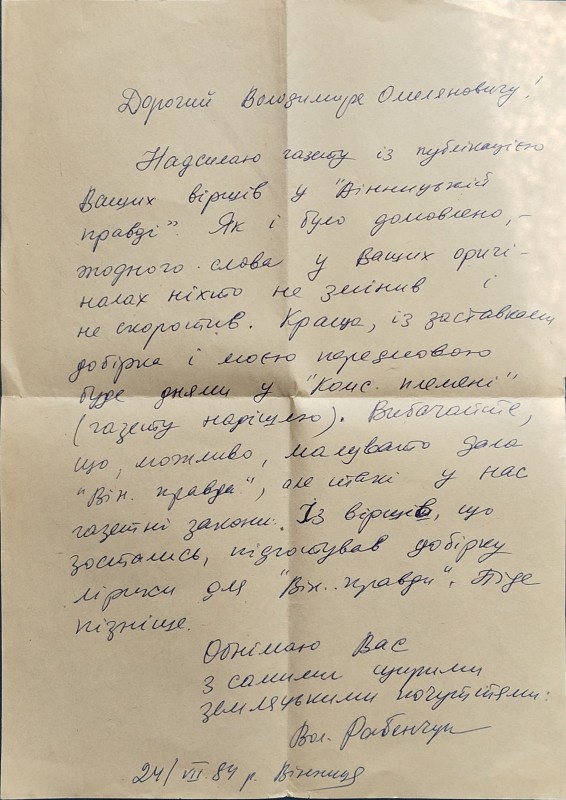 Дорогий Володимире Омеляновичу!
Надсилаю газету із публікацією
Ваших віршів у "Вінницькій
правді". Як і було домовлено, -
жодного слова у Ваших оригі-
налах ніхто не змінив і
не скоротив. Краща, із заставками
добірка і моєю передмовою
буде днями у "Комс. племені"
(газету надішлю). Вибачайте,
що, можливо, малувато дала
"Він. правда", але такі у нас
газетні закони. Із віршів, що
зостались, підготував добірку
лірики для "Він. правди". Піде
пізніше.
Обнімаю Вас
з самими щирими
земляцькими почуттями:
Вол. Рабенчук
24/VII.84 р. Вінниця